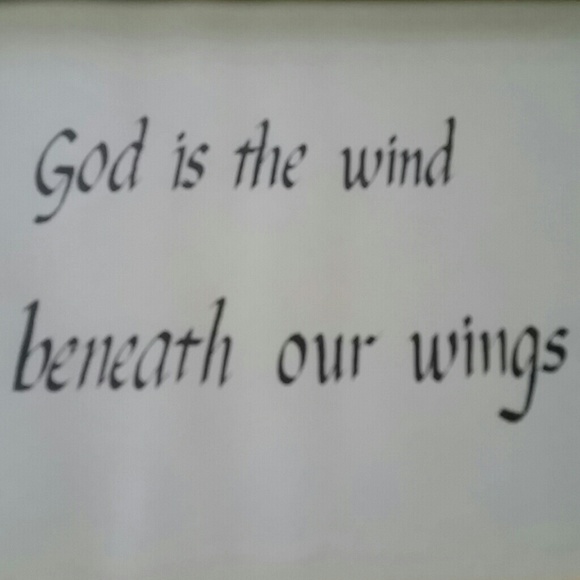 God is the wind
beneath our wings